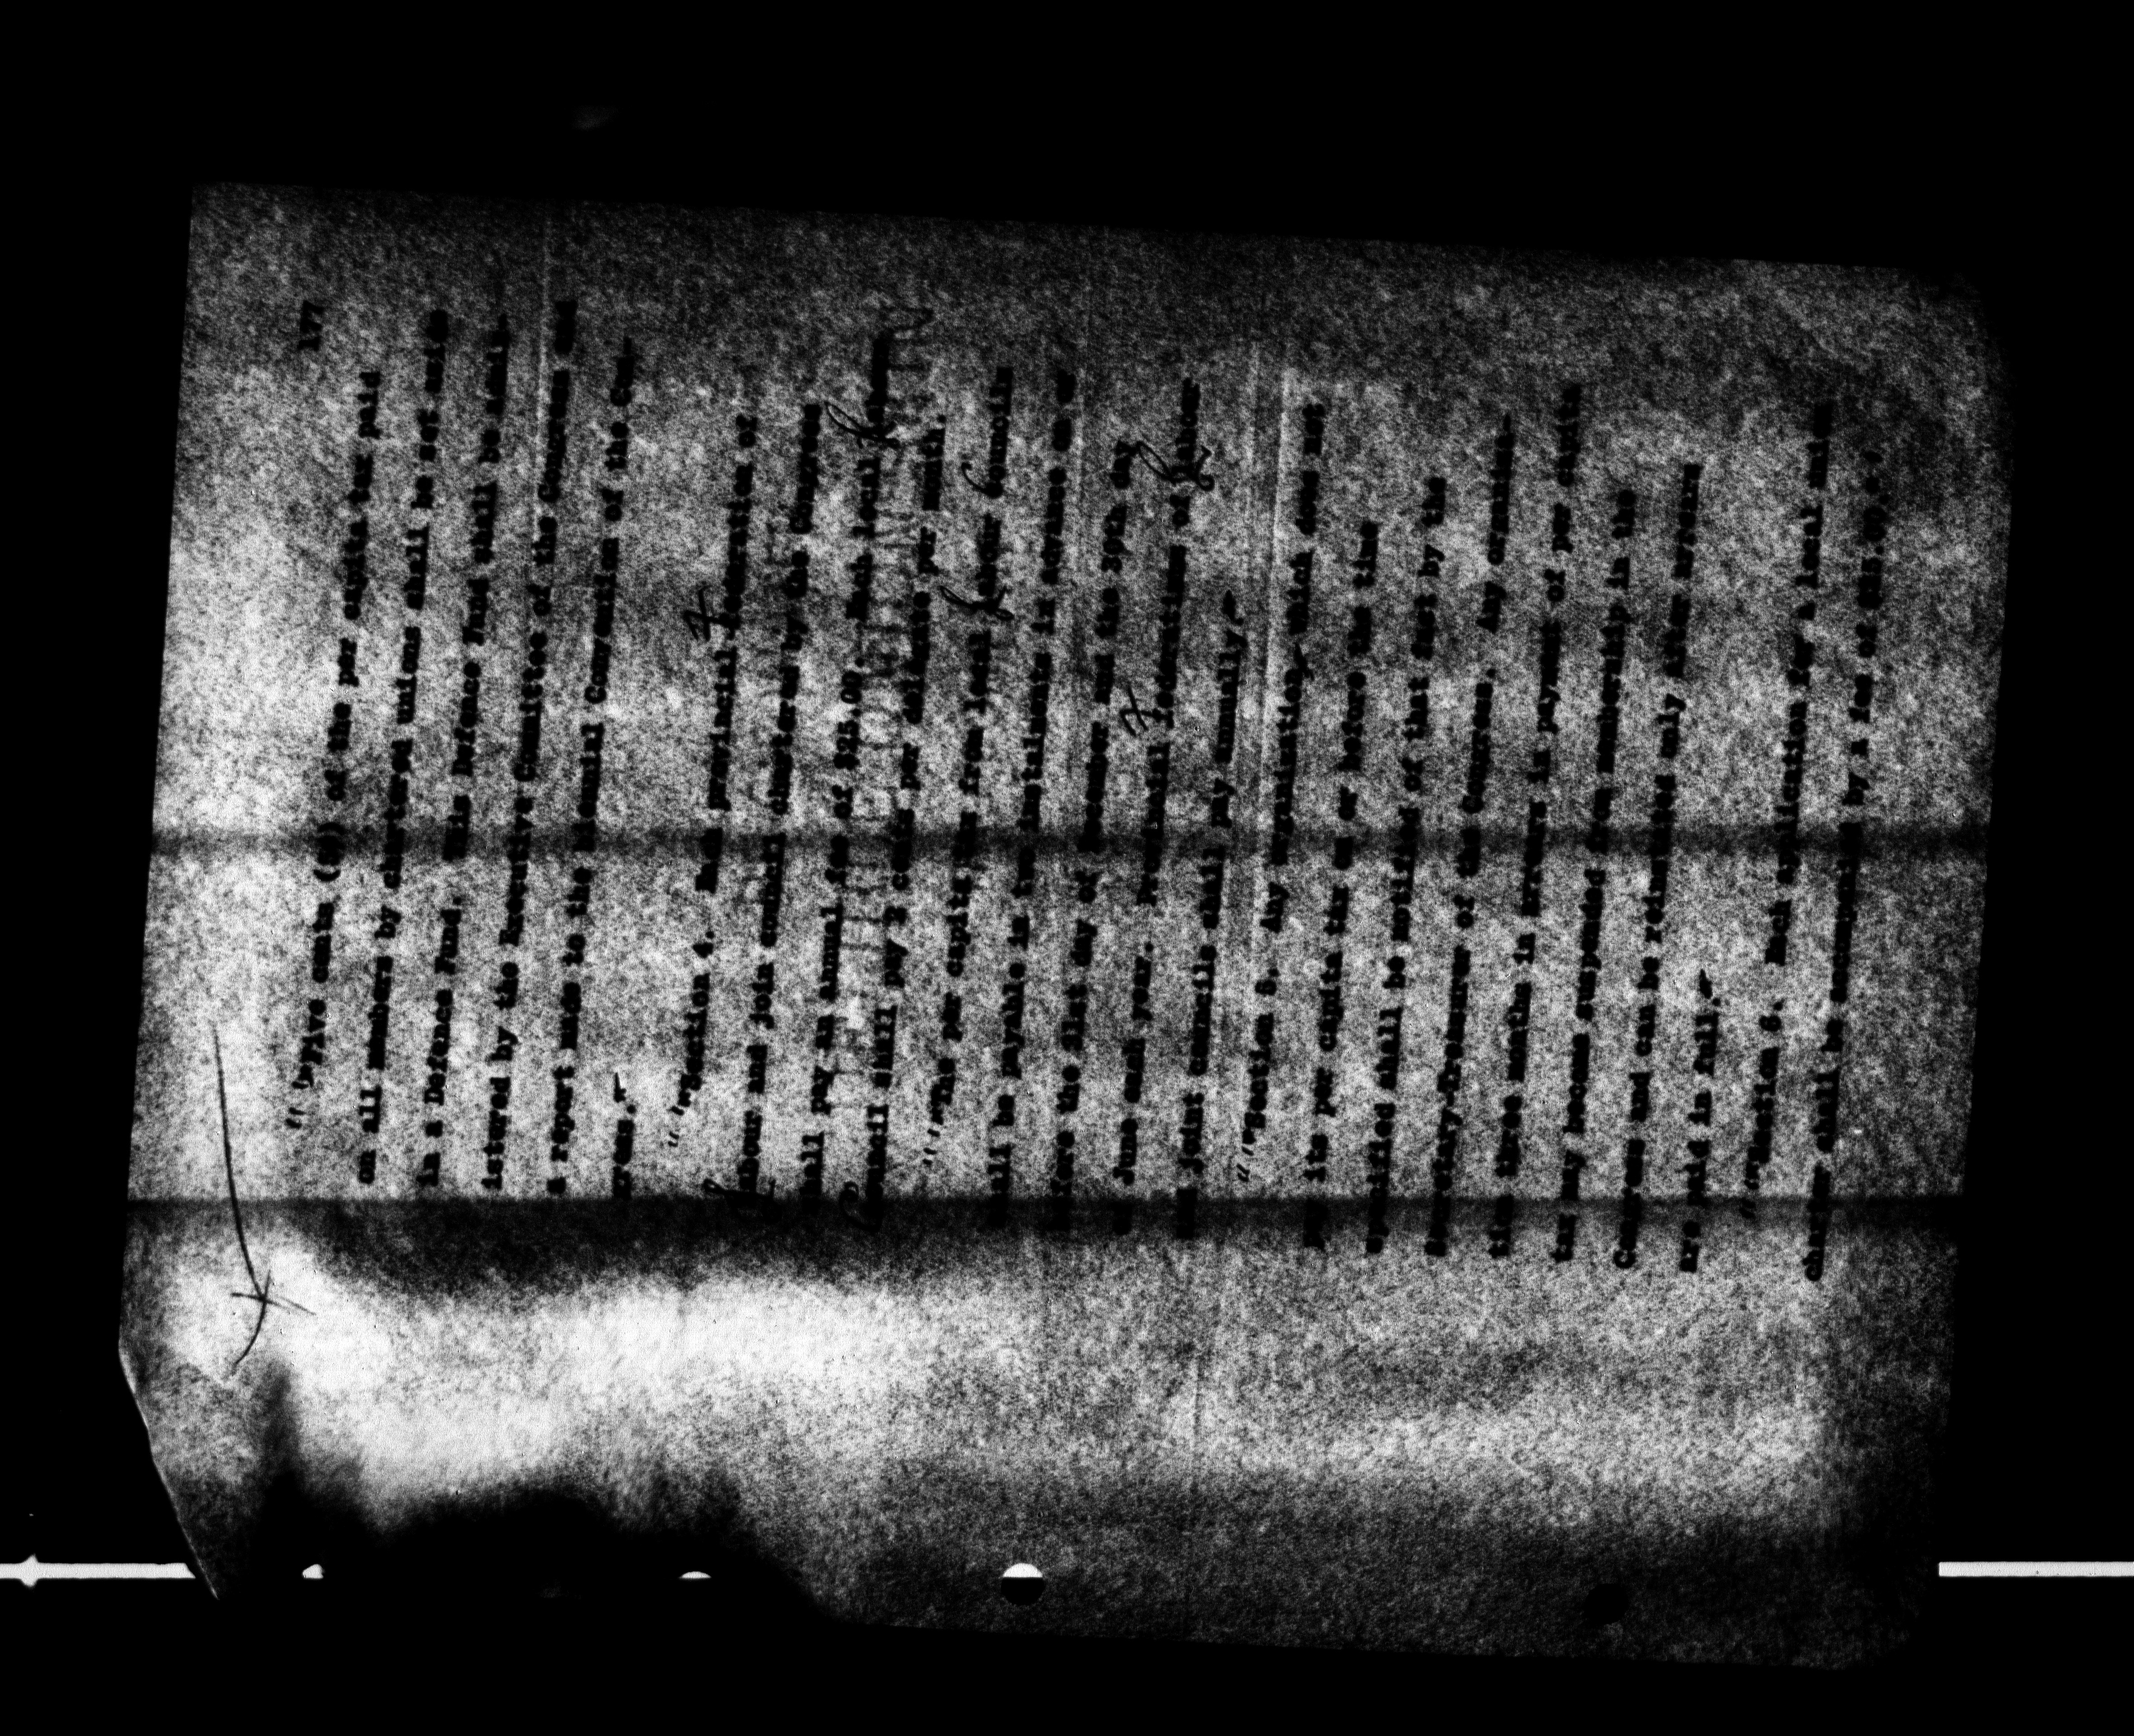 177
"'Five cents (5¢) of the per capita tax paid
on all members by chartered unions shall be set aside
in a Defence Fund. This Defence Fund shall be admin-
istered by the Executive Committee of the Congress and
a report made to the biennial Convention of the Con-
gress.
"'Section 4. Each provincial federation of
labour and joint council chartered by the Congress
shall pay an annual fee of $25.00. Each local labour
council shall pay 2 cents per per month.
"'The per capita from local labour councils
shall be payable in two instalments in advance on or
before the 31st day of December and the 30th day
of June each year. Provincial federations of labour
and joint councils shall pay annually.
"'Section 5. Any organization which does not
pay its per capita tax on or before the time
specified shall be notified of that fact by the
Secretary-Treasurer of the Congress. Any organiz-
tion three months in arrears in payment of per capita
tax may become suspended from membership in the
Congress and can be reinstated only after arrears
are paid in full.
"'Section 6. Each application for a local union
charter shall be accompanied by a fee of ($15.00).